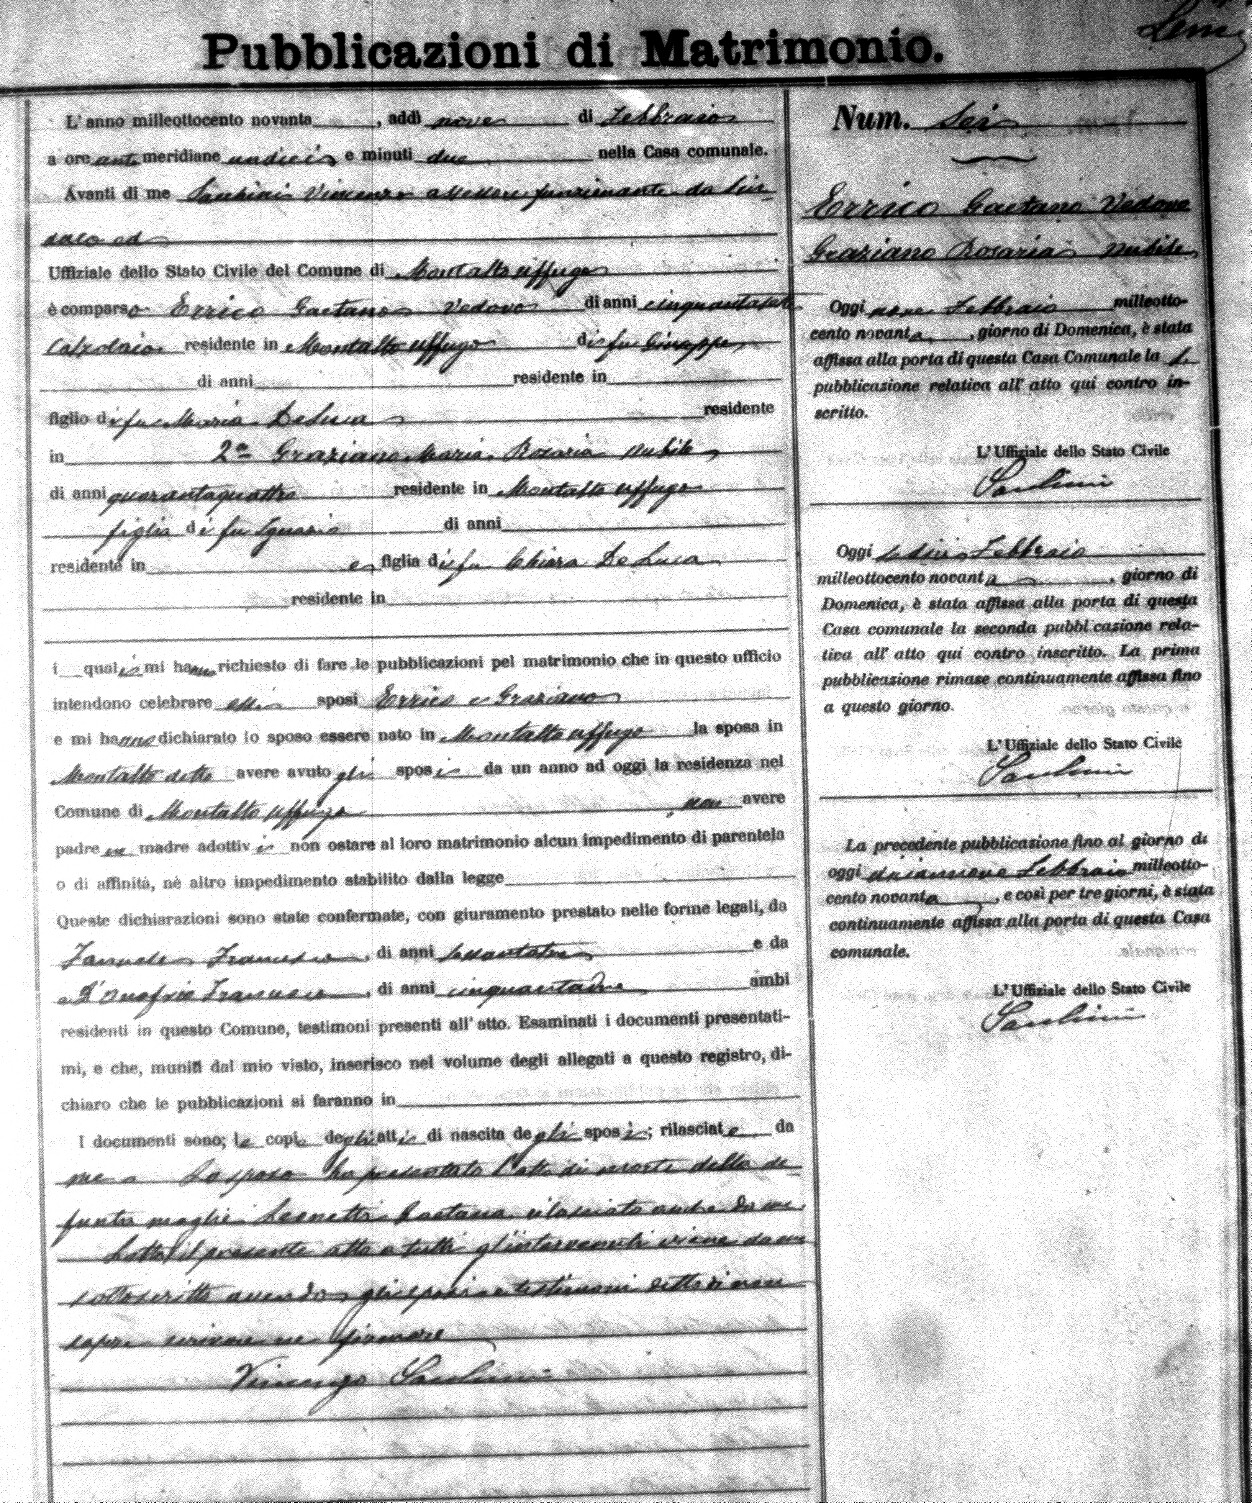 Pubblicazioni di Matrimonio.
L'anno milleottocento novanta, addì nove di Febbraio
a ore anti meridiane undici e minuti due nella Casa comunale.
Avanti di me Vincenzo assessore funzionante da Sin
daco ed
Uffiziale dello Stato Civile del Comune di Montalto Uffugo
è comparso Errico Gaetano Vedovo di anni cinquantasette
Calzolaio residente in Montalto Uffugo di fu Giuseppe
di anni residente in
figlio di fu Maria De Luca residente
in 2a Graziano Maria Rosaria nubile
di anni quarantaquattro residente in Montalto Uffugo
figlia di fu Ignazio di anni
residente in e figlia di fu Chiara De Luca
residente in
i quali mi hanno richiesto di fare le pubblicazioni pel matrimonio che in questo ufficio
intendono celebrare essi sposi Errico e Graziano
e mi hanno dichiarato lo sposo essere nato in Montalto Uffugo la sposa in
Montalto detto avere avuto gli sposi da un anno ad oggi la residenza nel
Comune di Montalto Uffugo non avere
padre madre adottivi non ostare al loro matrimonio alcun impedimento di parentela
o di affinità, nè altro impedimento stabilito dalla legge
Queste dichiarazioni sono state confermate, con giuramento prestato nelle forme legali, da
Francesco, di anni e da
D'Onofrio Francesco, di anni cinquantadue ambi
residenti in questo Comune, testimoni presenti all'atto. Esaminati i documenti presentati-
mi, e che, muniti dal mio visto, inserisco nel volume degli allegati a questo registro, di-
chiaro che le pubblicazioni si faranno in
I documenti sono; le copie degli atti di nascita degli sposi; rilasciate da
me Lo sposo ha presentato l'atto di morte della de
funta moglie Gaetana, rilasciato anche da me.
Letto il presente atto a tutti gl'intervenuti viene da me
sottoscritto avendo gli sposi e testimoni detto di non
sapere scrivere ne firmare
Vincenzo
Num. Sei
Errico Gaetano Vedovo
Graziano Rosaria nubile
Oggi nove Febbraio milleotto-
cento novanta, giorno di Domenica, è stata
affissa alla porta di questa Casa Comunale la
pubblicazione relativa all'atto qui contro in-
scritto.
L'Uffiziale dello Stato Civile
Oggi sedici Febbraio
milleottocento novanta, giorno di
Domenica, è stata affissa alla porta di questa
Casa comunale la seconda pubblicazione rela-
tiva all'atto qui contro inscritto. La prima
pubblicazione rimase continuamente affissa fino
a questo giorno.
L'Uffiziale dello Stato Civile
La precedente pubblicazione fino al giorno di
oggi diciannove Febbraio milleotto-
cento novanta, e così per tre giorni, è stata
continuamente affissa alla porta di questa Casa
comunale.
L'Uffiziale dello Stato Civile